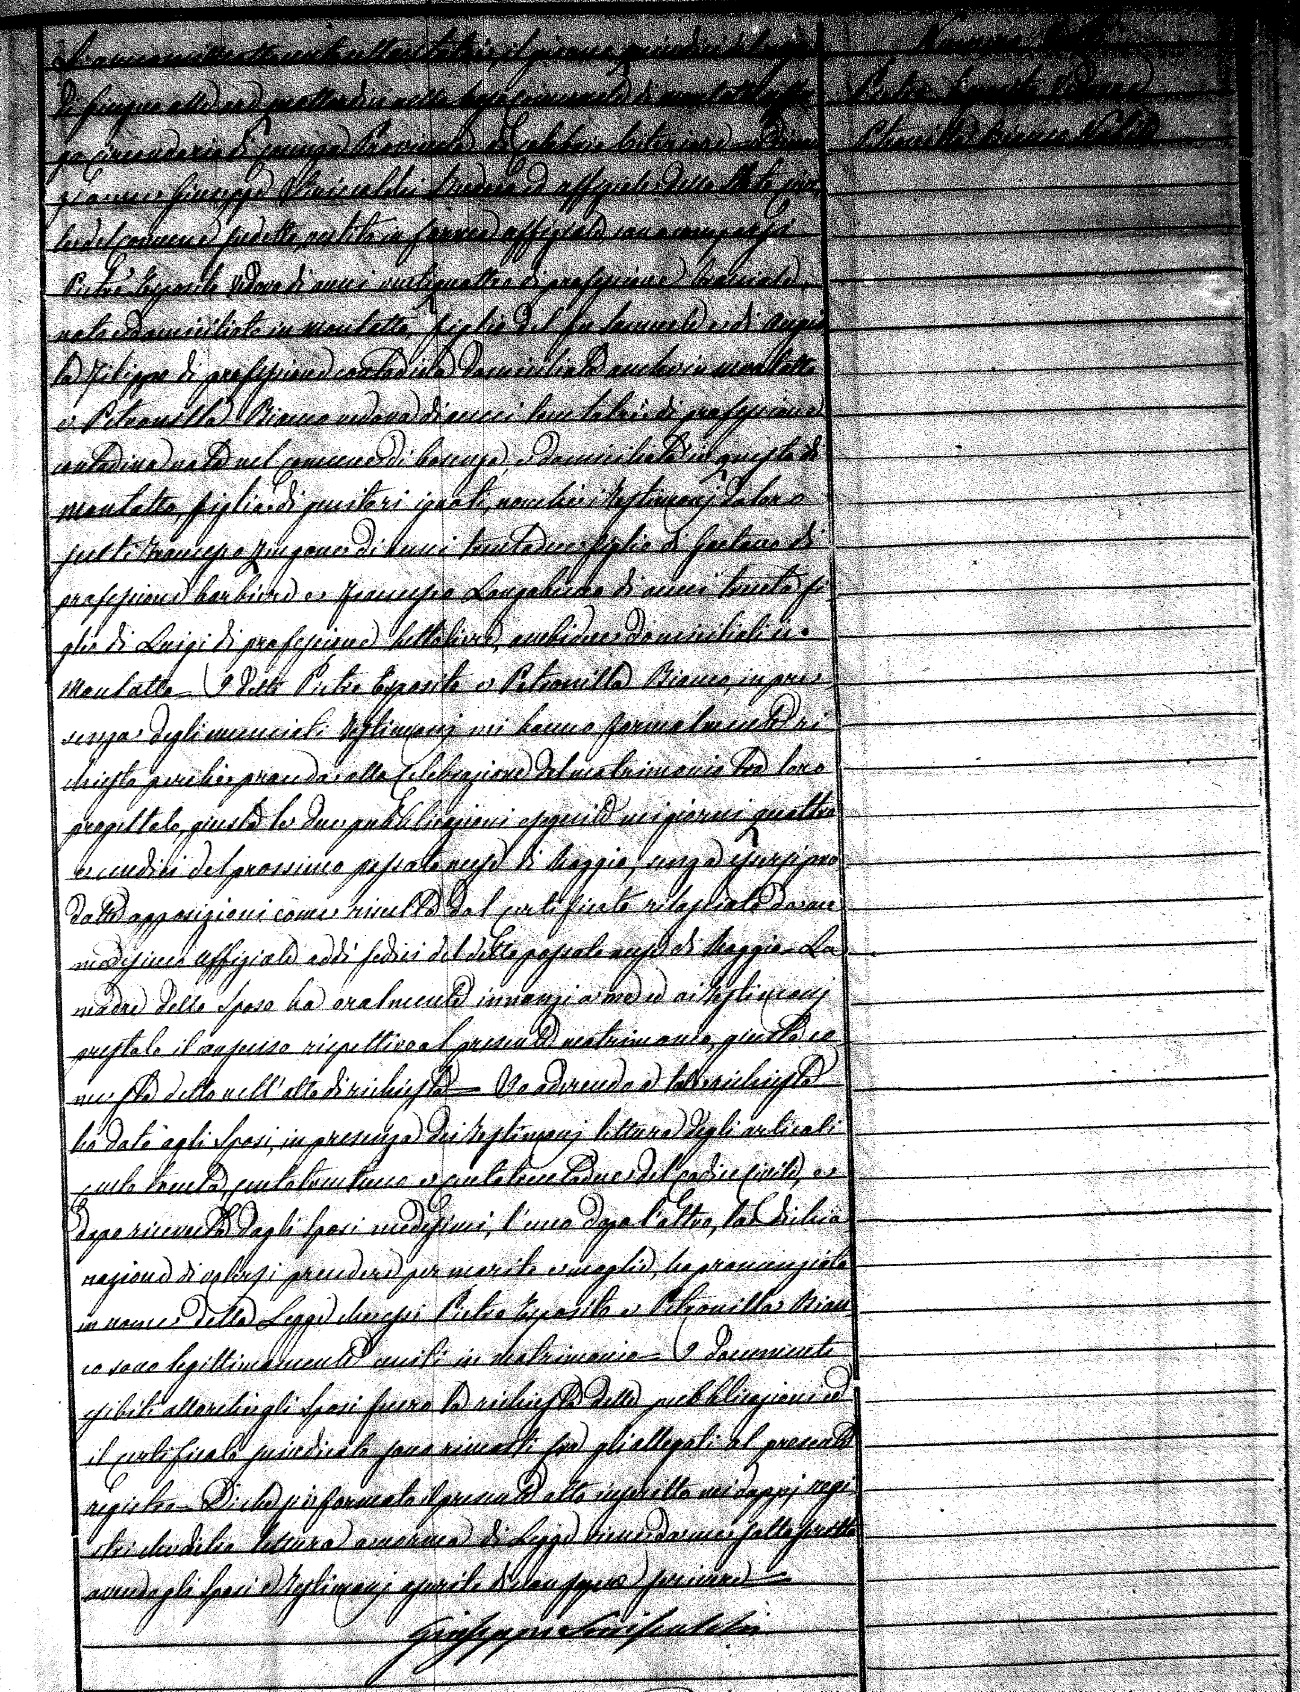 L'anno mille ottocento settantatre, il giorno quindici
di Giugno alle ore nella Casa Comunale di Montalto
Circondario di Cosenza Provincia di Calabria Citeriore
Giuseppe Sindaco ed uffiziale dello Stato Civi
le del comune vestito in forma uffiziale sono comparsi
Pietro Esposito vedovo di anni ventiquattro di professione
nato e domiciliato in Montalto, figlio del fu e di Angio
la Filippo di professione contadina domiciliata in Montalto
e Petronilla Bianco vedova di anni trentatrè di professione
contadina nata nel comune di Cosenza, e domiciliata in questo di
Montalto, figlia di genitori ignoti, nonchè i testimonj da loro
scelti Francesco Zingone di anni trentadue figlio di Gaetano di
professione barbiere e Francesco Longobucco di anni trenta fi
glio di Luigi di professione bottoliere, ambidue domiciliati in
Montalto – I detti Pietro Esposito e Petronilla Bianco, in pre
senza degli enunciati testimonj mi hanno formalmente ri
chiesto perchè proceda alla celebrazione del matrimonio tra loro
progettato, giusta le due pubblicazioni eseguite nei giorni quattro
e undici del prossimo passato mese di Maggio, senza essersi pro
dotte opposizioni come risulta dal certificato rilasciato da me
medesimo uffiziale addì sedici del detto passato mese di Maggio – La
madre dello sposo ha oralmente innanzi a me ed ai testimonj
prestato il consenso rispettivo al presente matrimonio, giusta co
me sta detto nell'atto di richiesta – Ed aderendo a tale richiesta
ho dato agli sposi, in presenza dei testimonj lettura degli articoli
cento trenta, centotrentuno e centotrentadue del codice civile, e
dopo ricevuta dagli sposi medesimi, l'uno dopo l'altro, la dichia
razione di volersi prendere per marito e moglie, ho pronunziato
in nome della Legge che essi Pietro Esposito e Petronilla Bian
co sono legittimamente uniti in matrimonio – I documenti
esibiti allorchè gli sposi fecero la richiesta delle pubblicazioni ed
il certificato suindicato sono rimasti fra gli allegati al presente
registro – Di che si è formato il presente atto inscritto nei doppj regi
stri che dietro lettura a norma di Legge viene da me sottoscritto
avendo gli sposi e testimonj asserito di non sapere scrivere –
Giuseppe
Numero
Pietro Esposito Vedovo
Petronilla Bianco Vedova